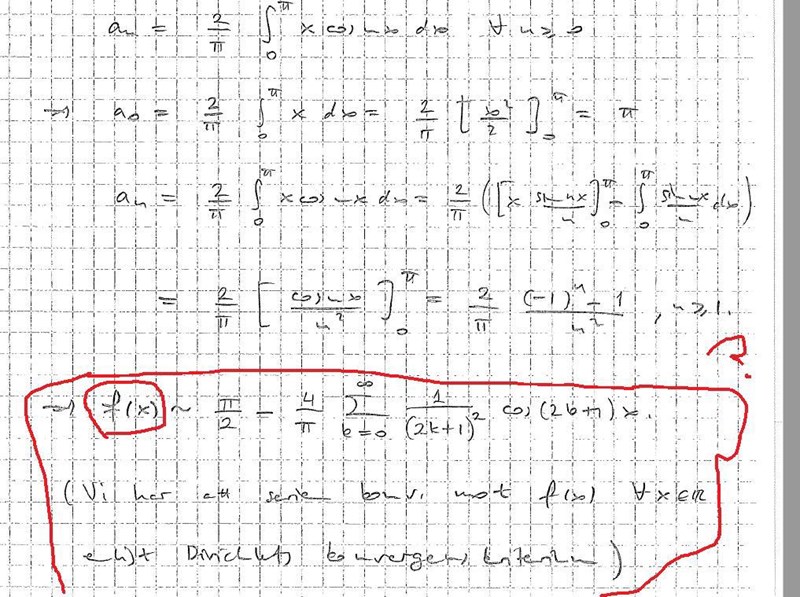 aₙ = 2/π ∫₀^π x cos nx dx ∀ n ≥ 0
→ a₀ = 2/π ∫₀^π x dx = 2/π [x²/2]₀^π = π
aₙ = 2/π ∫₀^π x cos nx dx = 2/π ([x sin nx/n]₀^π - ∫₀^π sin nx/n dx)
= 2/π [cos nx/n²]₀^π = 2/π ((-1)ⁿ - 1)/n² , n ≥ 1.
?
→ f(x) ~ π/2 - 4/π ∑_{k=0}^∞ 1/(2k+1)² cos(2k+1)x.
(Vi har att serien konv. mot f(x) ∀x∈ℝ
enligt Dirichlets konvergenskriterium)